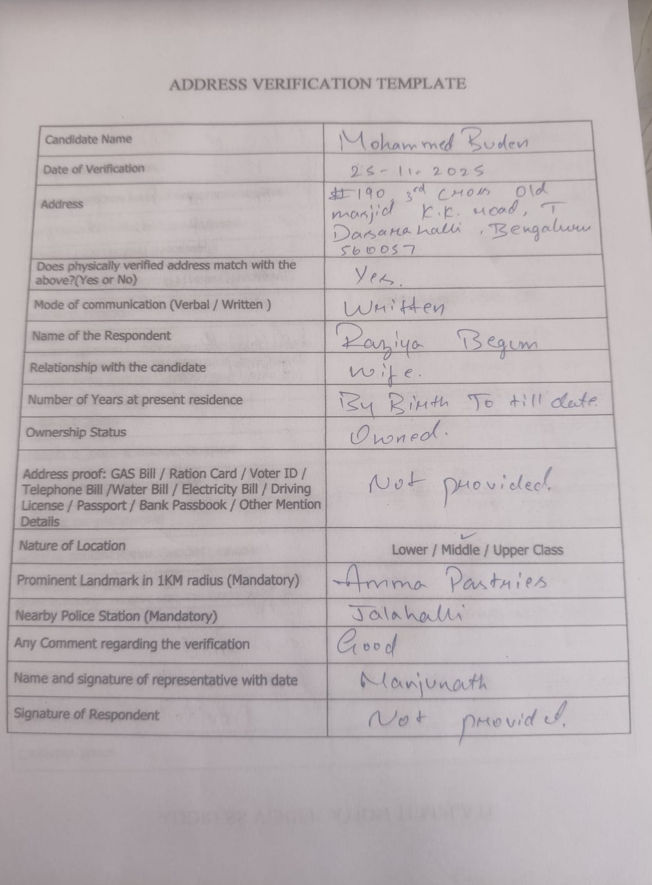 ADDRESS VERIFICATION TEMPLATE
Candidate Name Mohammed Buden
Date of Verification 25-11-2025
Address #190 3rd cross old
masjid K.K. road, T
Dasarahalli, Bengaluru
560057
Does physically verified address match with the
above?(Yes or No) Yes.
Mode of communication (Verbal / Written ) Written
Name of the Respondent Raziya Begum
Relationship with the candidate wife.
Number of Years at present residence By Birth To till date
Ownership Status Owned.
Address proof: GAS Bill / Ration Card / Voter ID /
Telephone Bill /Water Bill / Electricity Bill / Driving
License / Passport / Bank Passbook / Other Mention
Details Not provided.
Nature of Location Lower / Middle / Upper Class
Prominent Landmark in 1KM radius (Mandatory) Amma Pastries
Nearby Police Station (Mandatory) Jalahalli
Any Comment regarding the verification Good
Name and signature of representative with date Manjunath
Signature of Respondent Not provided.